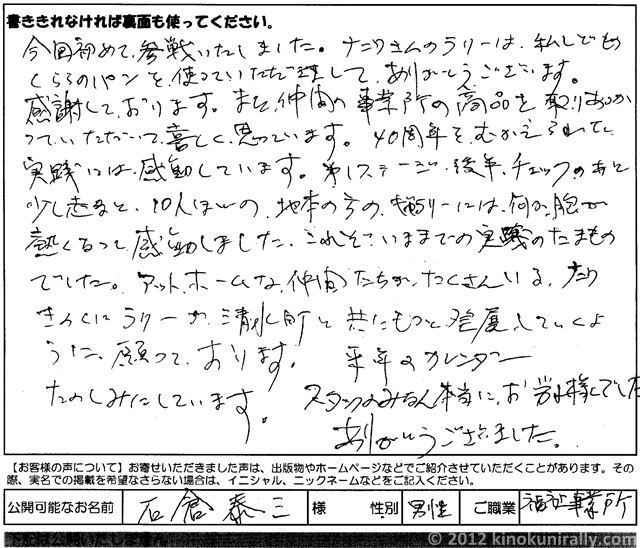 書ききれなければ裏面も使ってください。
今回初めて参戦いたしました。 さんのラリーは、私しども
くららのパンを使っていただきまして、ありがとうございます。
感謝しております。また仲間の事業所の商品を取りあつか
っていただいて喜しく思っています。40周年をむかえられて
実践には感動しています。第1ステージ、後半、チェックのあと
少し走ると、10人ほどの、地本の方の ラリーには、何か胸が
熱くなって感動しました。これぞ、いままでの実践のたまもの
でした。アットホームな仲間たちが、たくさんいる、
きのくにラリーが、清水町と共にもっと発展していくよ
うに、願っております。 来年のカレンダー
たのしみにしています。 スタッフのみなさん本当に、お労れ様でした
ありがとうございました。
【お客様の声について】お寄せいただきました声は、出版物やホームページなどでご紹介させていただくことがあります。その
際、実名での掲載を希望なさらない場合は、イニシャル、ニックネームなどをご記入ください。
公開可能なお名前 石倉泰三 様 性別 男性 ご職業 福祉事業所
下記は公開いたしません
© 2012 kinokunirally.com